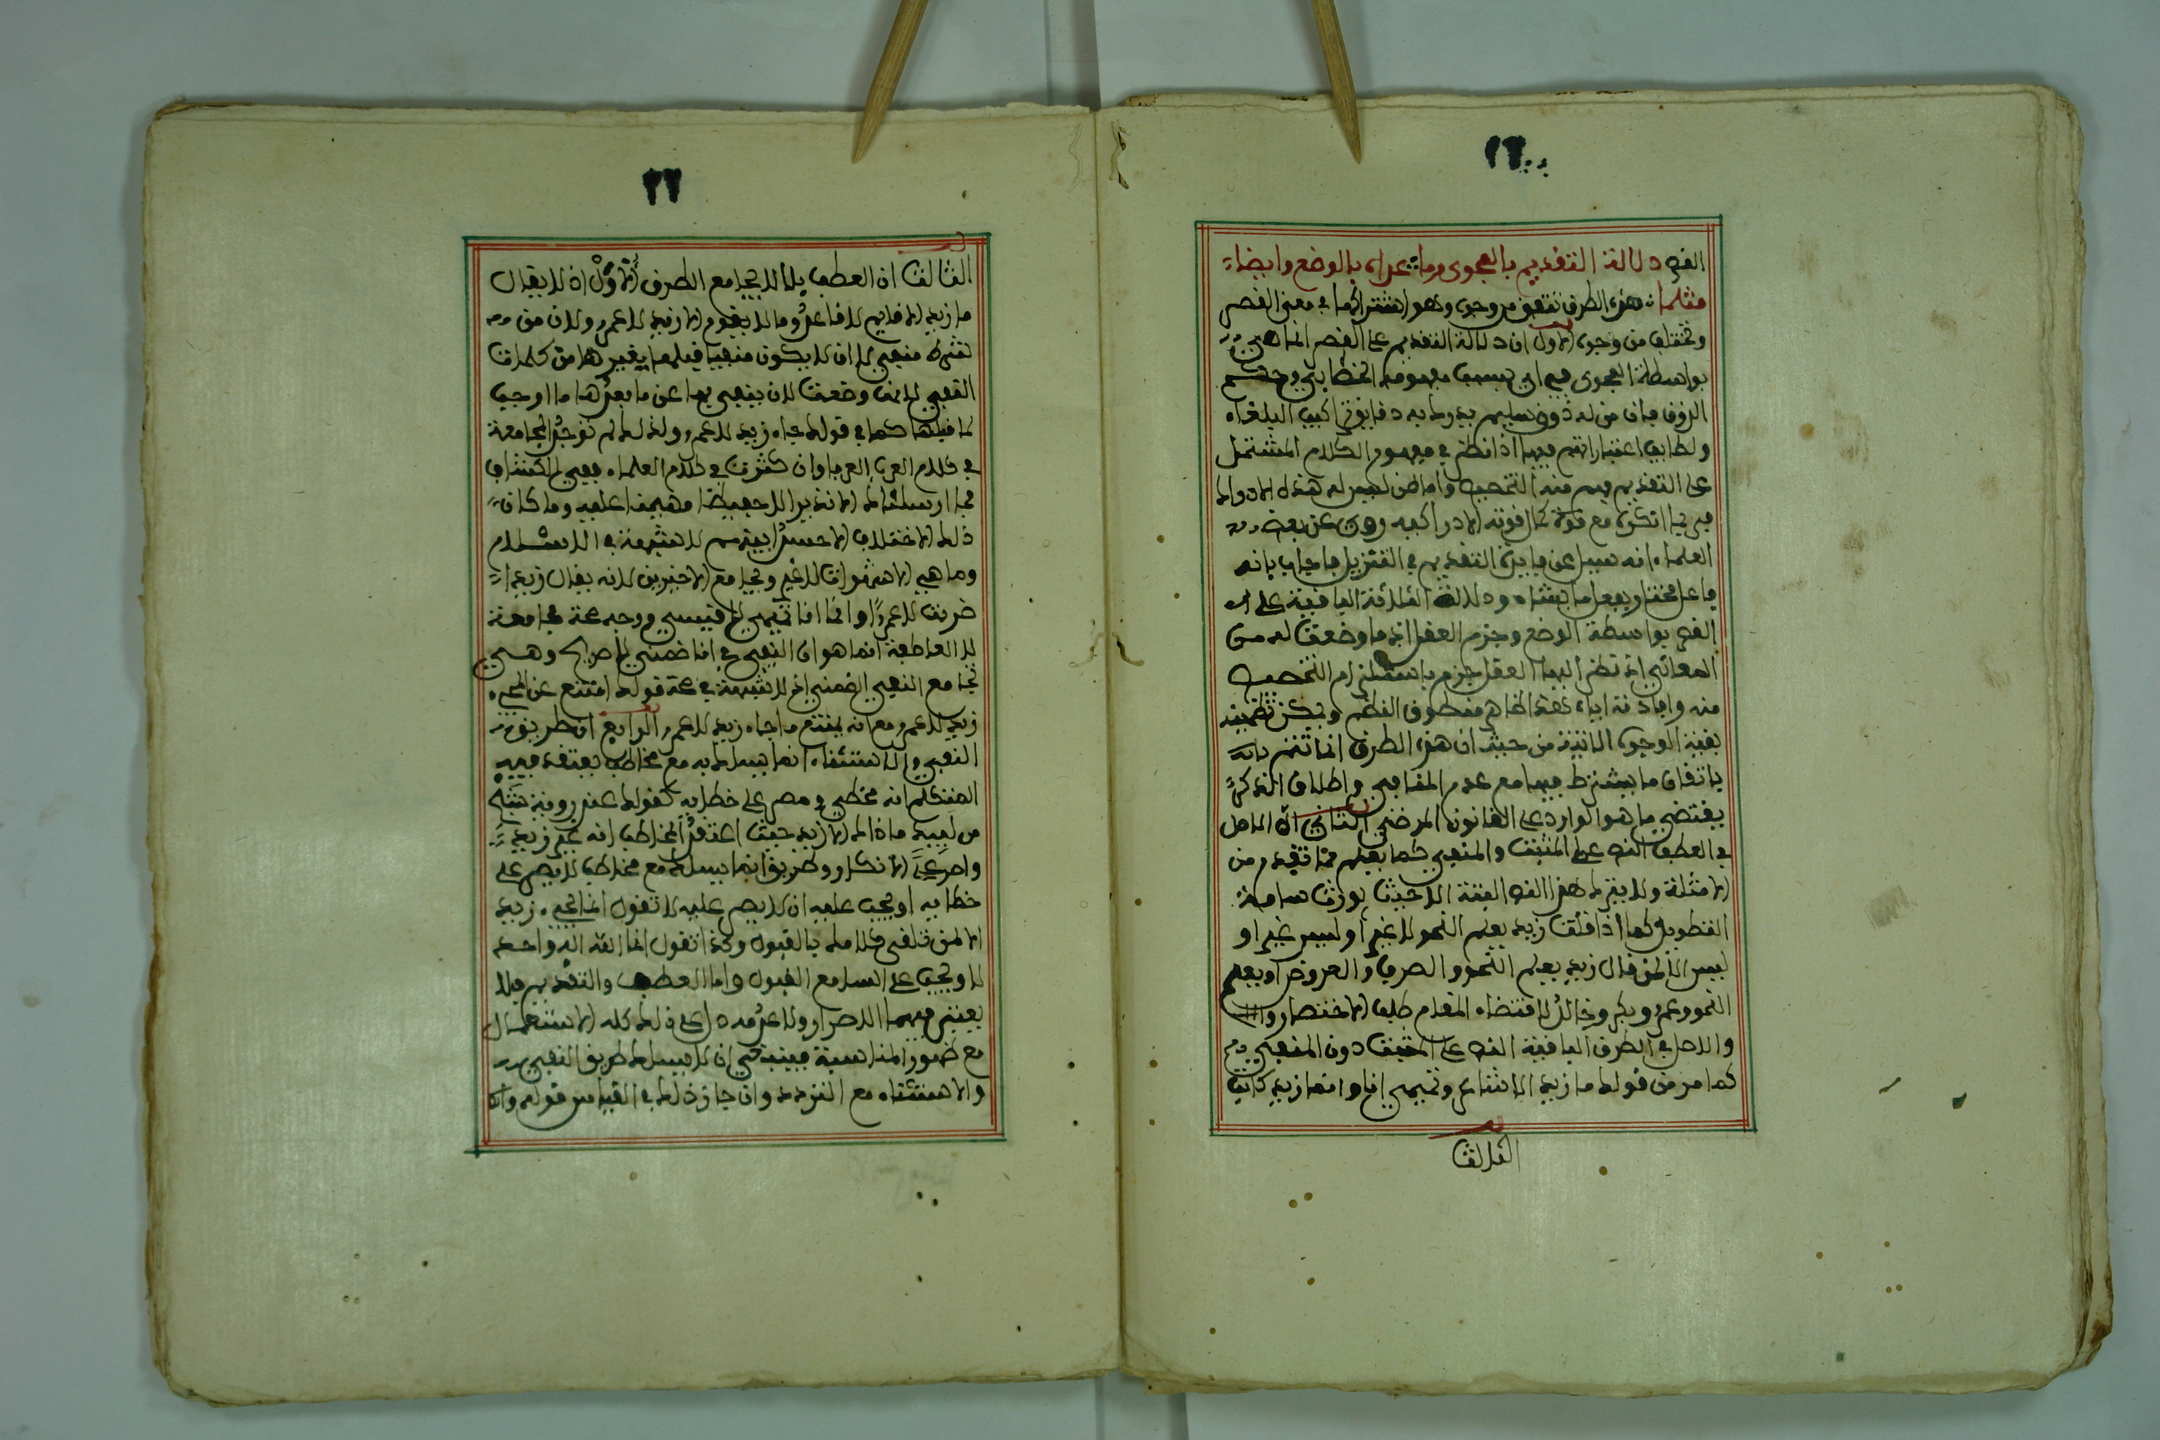 القصر دلالة التقديم بالفحوى وما عداه بالوضع وايضا
مثلما هذه الطرق تتفق من وجه وهو اشتراكها في معنى القصر
وتختلف من وجوه الاول ان دلالة التقديم على القصر انما هي
بواسطة الفحوى فيه اي بحسب مفهومه الخطابي وحكم
الذوق فان من له ذوق سليم يدرك به دقايق تراكيب البلغاء
ولطايف اعتباراتهم فيها اذا نظر في مفهوم الكلام المشتمل
على التقديم فهم منه التخصيص واما من ليس له هذه الادراك
العلماء انه سيل عن فايدة التقديم في التنزيل فاجاب بانه
فاعل مختار يفعل ما يشاء ودلالة الثلاثة الباقية على
القصر بواسطة الوضع وجزم العقل اذ ما وضعت له من
المعاني اذ نظر اليها العقل جزم باستلزام التخصيص
منه وافادته اياه هذا الظاهر منطوق النظم ويمكن تضمينه
بقية الوجوه الاتية من حيث ان هذه الطرق انما تتم
باتفاق ما يشترط فيها مع عدم المنافي واطلاق الذكر
يقتضي ما هو الوارد على القانون المرضي الثاني ان الاصل
في العطف النص على المثبت والمنفي كما يعلم مما تقدم من
الامثلة ولا يترك هذا النص البتة الا حيث يورث سامة
التطويل كما اذا قلت زيد يعلم النحو لا غير او ليس غير او
ليس الا لمن قال زيد يعلم النحو والصرف والعروض او يعلم
النحو وعمرو وبكر وخالد لاقتضاء المقام طلب الاختصار
والاصل في الطرق الباقية النص على المثبت دون المنفي
كما مر من قولك ما زيد الا شاعر وتميمي انا وانما زيد كاتب
الثالث
٢٦
الثالث ان العطف بلا لا يجامع الطرف الاول اذ لا يقال
ما زيد الا قايم لا قاعد وما لا يقوم الا زيد لا عمرو لان من
شرط منفي لا ان لا يكون منفيا قبلها بغيرها من كلمات
النفي لانها وضعت لان ينفى بها عن ما بعدها ما اوجب
لما قبلها كما في قولك جاء زيد لا عمرو ولذلك لم توجد المجامعة
في كلام العرب العرباء وان كثرت في كلام العلماء ففي الكشاف
ذلك الاختلاف الا حسدا بينهم لا شبهة في الاسلام
وما هي الا شهوات لا غير وتجامع الاخيرين لانه يقال زيدا
ضربت لا عمرا وانما انا تميمي لا قيسي ووجه صحة مجامعة
لا العاطفة انما هو ان النفي في انما ضمني لا صريح وهي
تجامع النفي الضمني اذ لا شبهة في صحة قولك امتنع عن المجيء
زيد لا عمرو مع انه يمتنع ما جاء زيد لا عمرو الرابع ان طريق
النفي والاستثناء انما يسلك به مع مخاطب يعتقد فيه
المتكلم انه مخطي ومصر على خطايه كقولك عند روية شبح
من بعيد ما ذاك الا زيد حيث اعتقد المخاطب انه غير زيد
واصر على الانكار وطريق انما يسلك مع مخاطب لا يصر على
خطايه او يجب عليه ان لا يصر عليه لا تقول انما يجيء زيد
الا لمن تلقى كلامك بالقبول وكذا تقول انما الله اله واحد
لما وجب على السامع القبول واما العطف والتقديم فلا
يعتبر فيهما الاصرار ولا عدمه دل على ذلك كله الاستعمال
مع ظهور المناسبة فينبغي ان لا يسلك طريق النفي
والاستثناء مع التردد وان جاز ذلك في القياس قوله وان